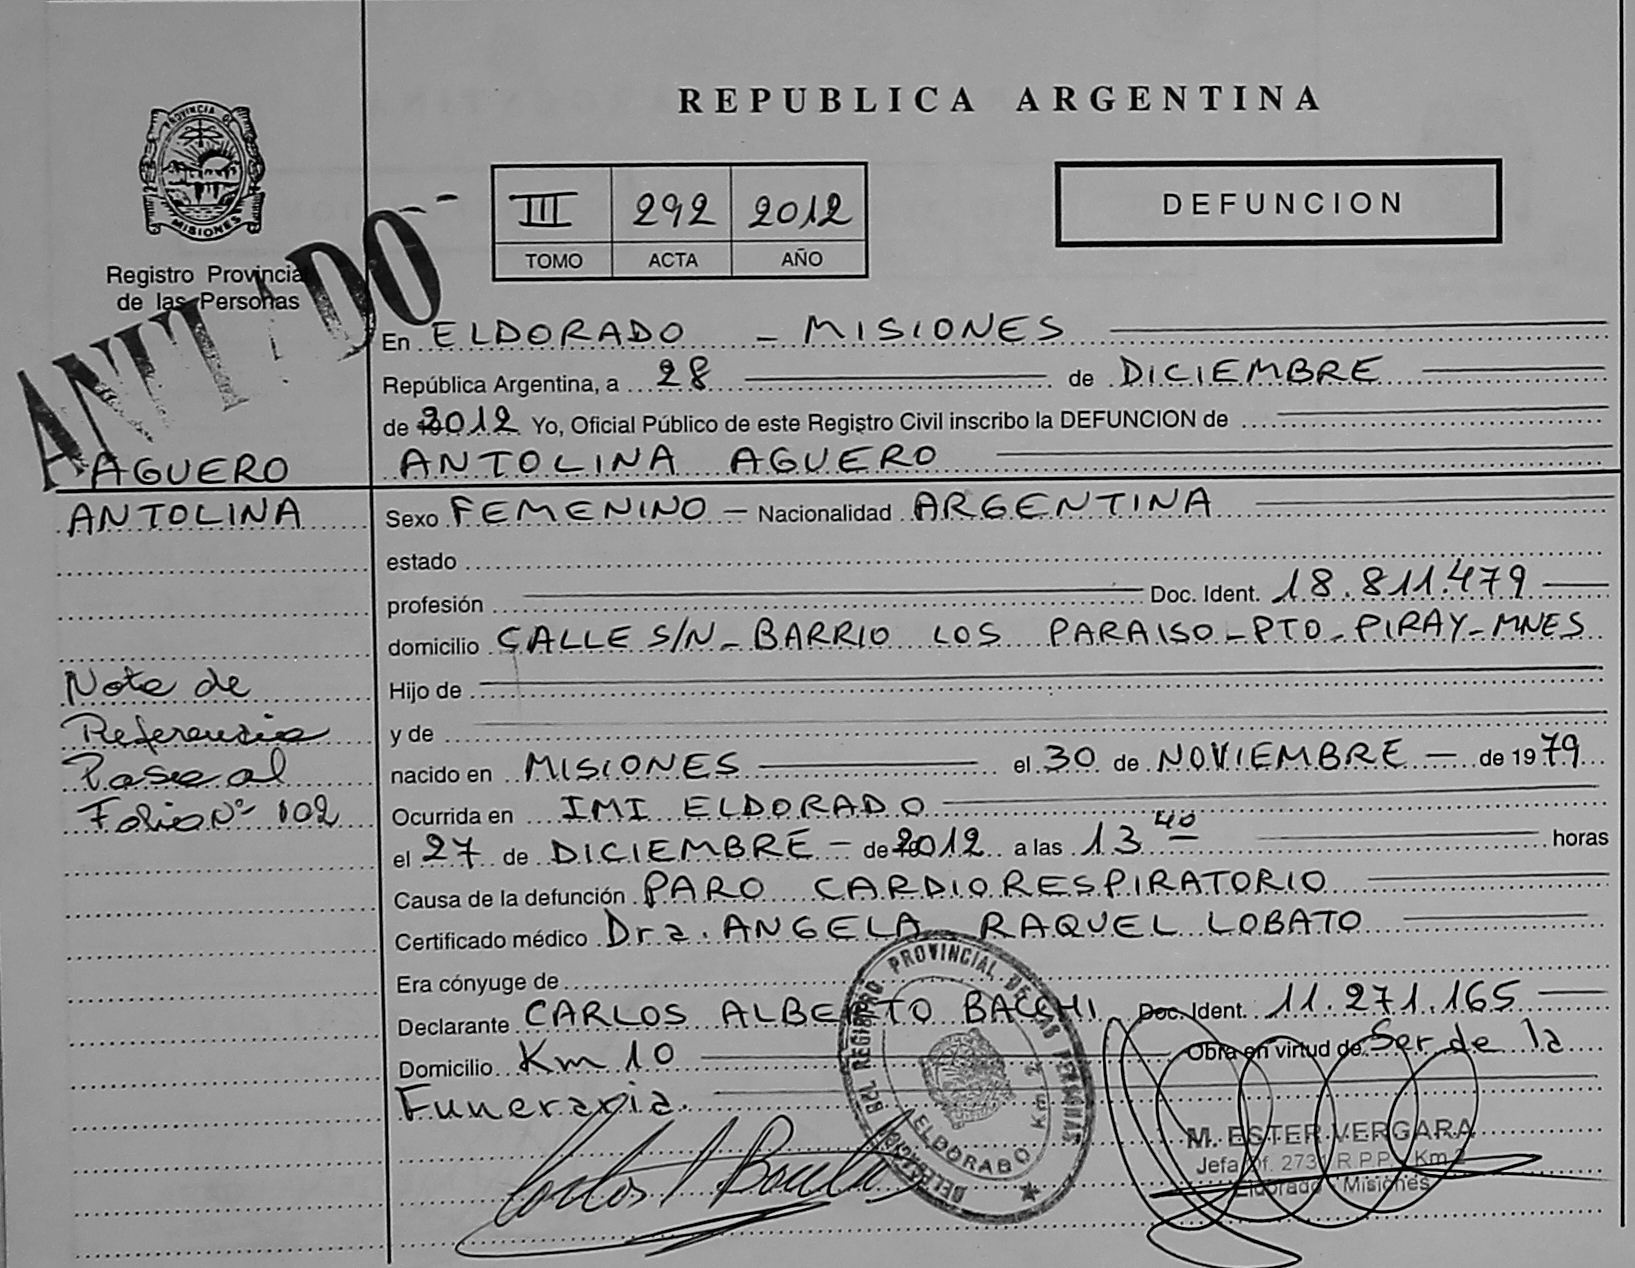 REPUBLICA ARGENTINA
PROVINCIA DE
MISIONES
Registro Provincial
de las Personas
III 292 2012
TOMO ACTA AÑO
DEFUNCION
En ELDORADO - MISIONES
República Argentina, a 28 de DICIEMBRE
de 2012 Yo, Oficial Público de este Registro Civil inscribo la DEFUNCION de
AGUERO
ANTOLINA AGUERO
ANTOLINA
Sexo FEMENINO - Nacionalidad ARGENTINA
estado
profesión Doc. Ident. 18.811.479
domicilio CALLE S/N - BARRIO LOS PARAISO - PTO - PIRAY - MNES
Nota de
Referencia
Pase al
Folio Nº 102
Hijo de
y de
nacido en MISIONES el 30 de NOVIEMBRE - de 1979
Ocurrida en IMI ELDORADO
el 27 de DICIEMBRE - de 2012 a las 13 40 horas
Causa de la defunción PARO CARDIORESPIRATORIO
Certificado médico Dra. ANGELA RAQUEL LOBATO
Era cónyuge de
Declarante CARLOS ALBERTO BACCHI Doc. Ident. 11.271.165
Domicilio Km 10 Obra en virtud de Ser de la
Funeraria.
REGISTRO PROVINCIAL DE LAS PERSONAS
ELDORADO Km 2
M. ESTER VERGARA
Jefa Of. 273 R.P.P. Km 2
Eldorado - Misiones